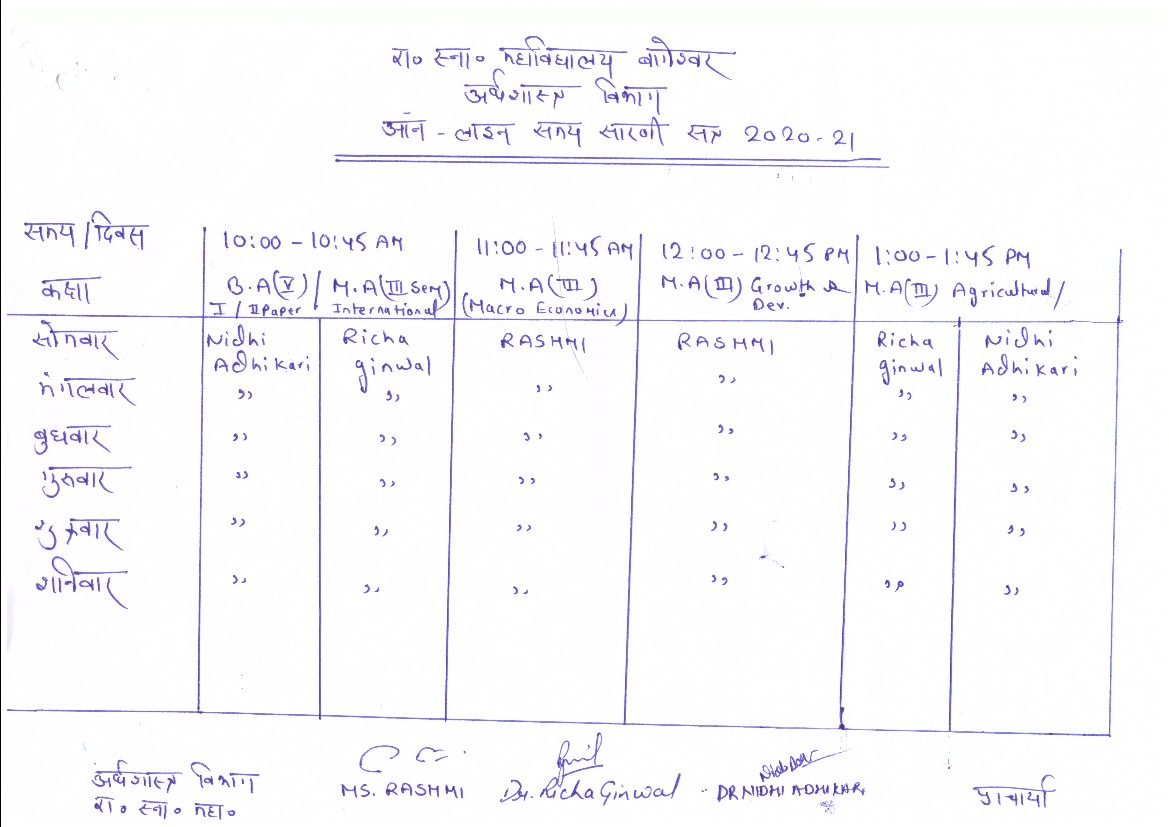 रा० स्ना० महाविद्यालय बागेश्वर
अर्थशास्त्र विभाग
ऑन - लाइन समय सारणी सत्र 2020-21
समय/दिवस 10:00 - 10:45 AM 11:00 - 11:45 AM 12:00 - 12:45 PM 1:00 - 1:45 PM
कक्षा B.A(V) / M.A(III Sem) M.A(III) M.A(III) Growth & M.A(III) Agricultural/
I / II Paper International (Macro Economics) Dev.
सोमवार Nidhi Richa RASHMI RASHMI Richa Nidhi
Adhikari ginwal ginwal Adhikari
मंगलवार ,, ,, ,, ,, ,, ,,
बुधवार ,, ,, ,, ,, ,, ,,
गुरुवार ,, ,, ,, ,, ,, ,,
शुक्रवार ,, ,, ,, ,, ,, ,,
शनिवार ,, ,, ,, ,, ,, ,,
अर्थशास्त्र विभाग MS. RASHMI Dr. Richa Ginwal DR NIDHI ADHIKARI प्राचार्या
रा० स्ना० महा०